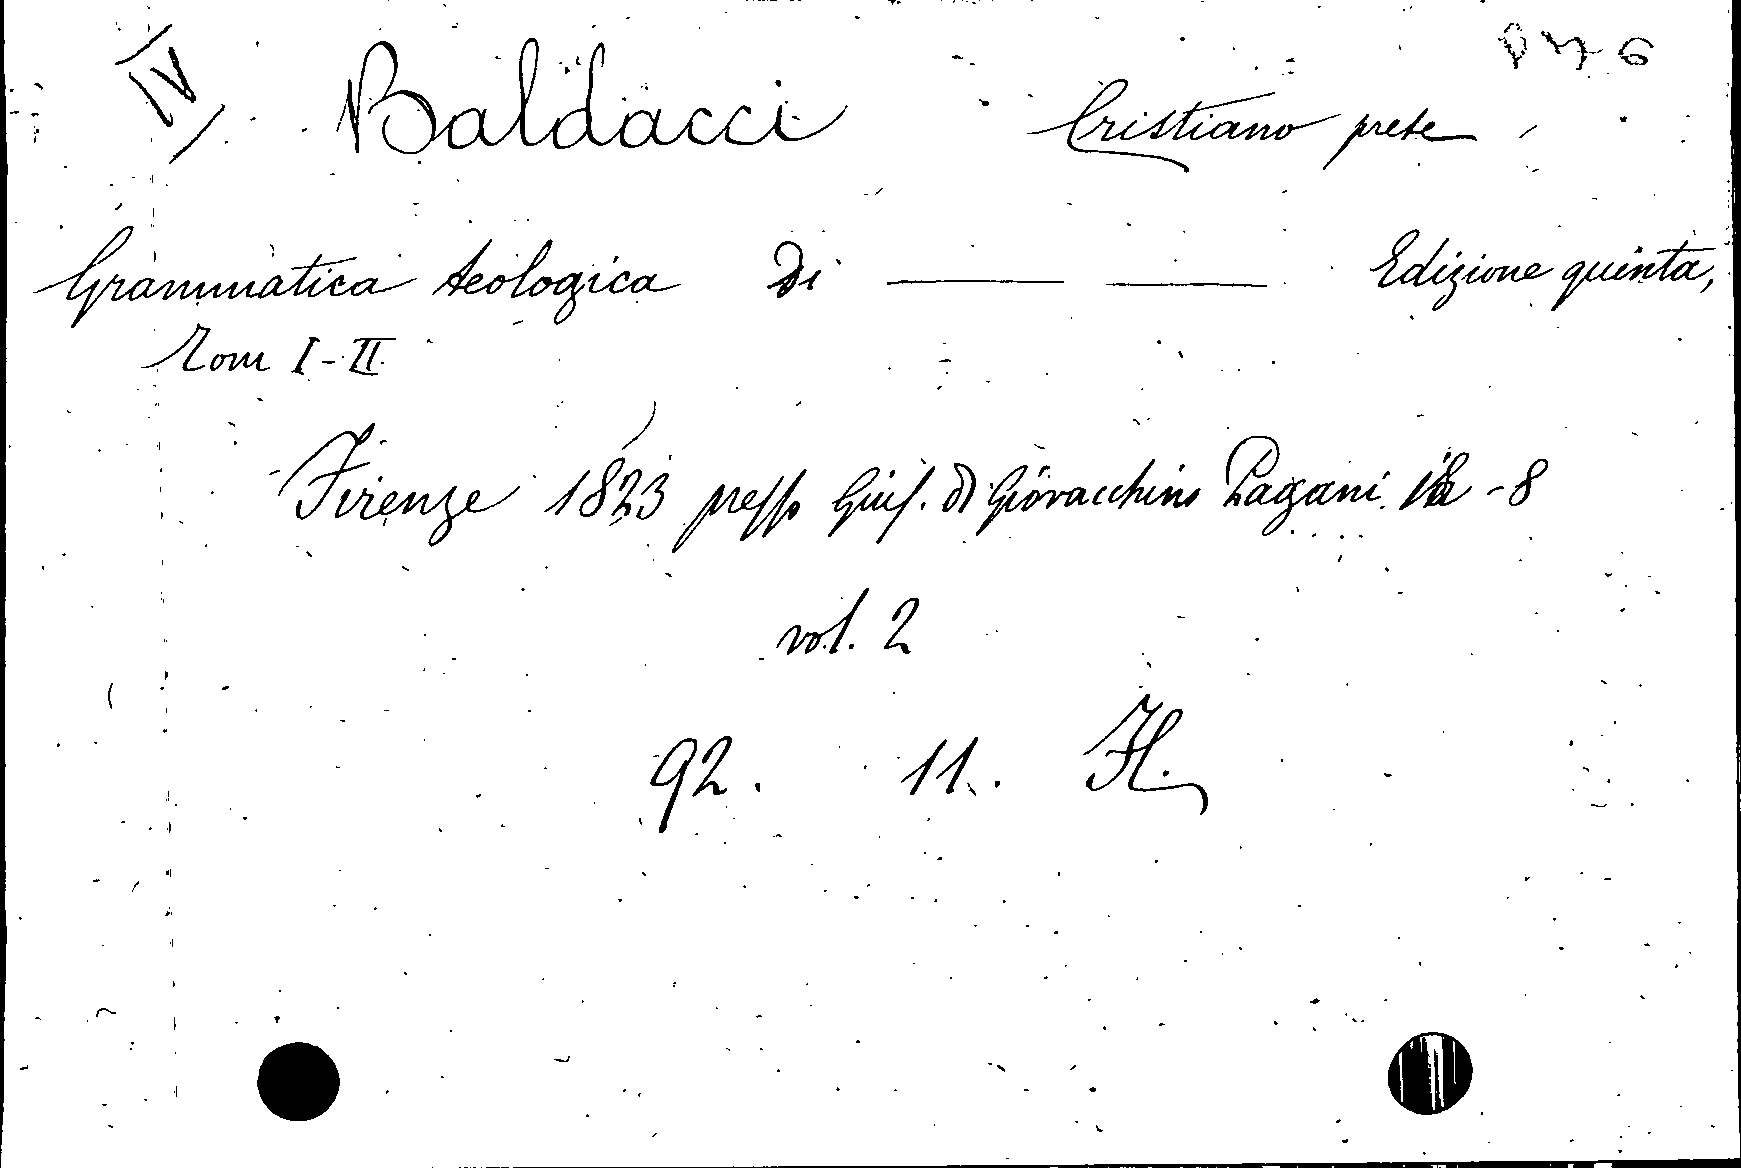 IV
Baldacci Cristiano prete
Grammatica teologica di —— —— Edizione quinta,
Tom I-II
Firenze 1823 presso Gius. di Giovacchino Pagani in -8
vol. 2
92. 11. H.